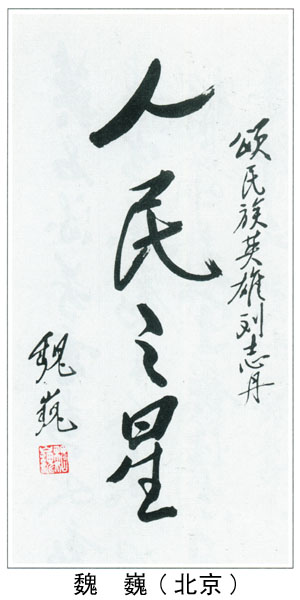 颂民族英雄刘志丹
人民之星
魏巍
魏 巍（北京）